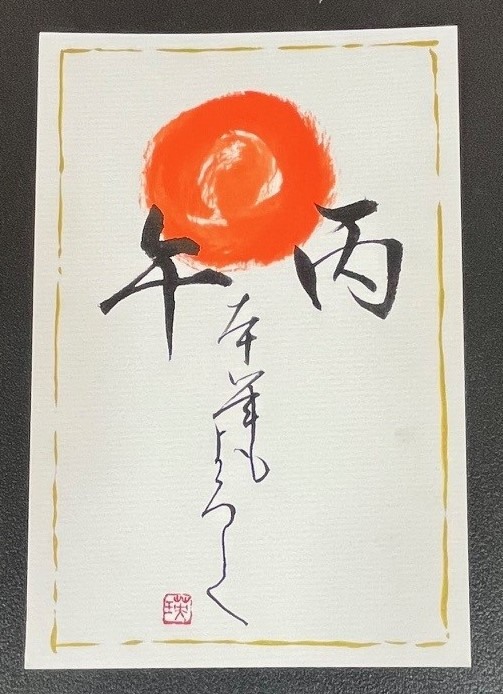 丙午
本年もよろしく
瑛